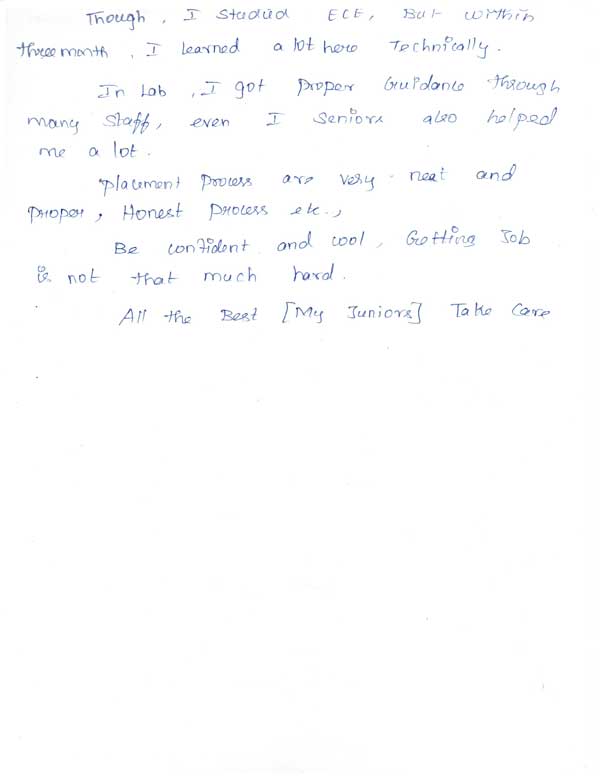 Though, I Studied ECE, But within
three month, I learned a lot here Technically.
In Lab, I got proper Guidance through
many Staff, even I Seniors also helped
me a lot.
Placement Process are very neat and
proper, Honest Process etc.,
Be confident and cool, Getting Job
is not that much hard.
All the Best [My Juniors] Take Care